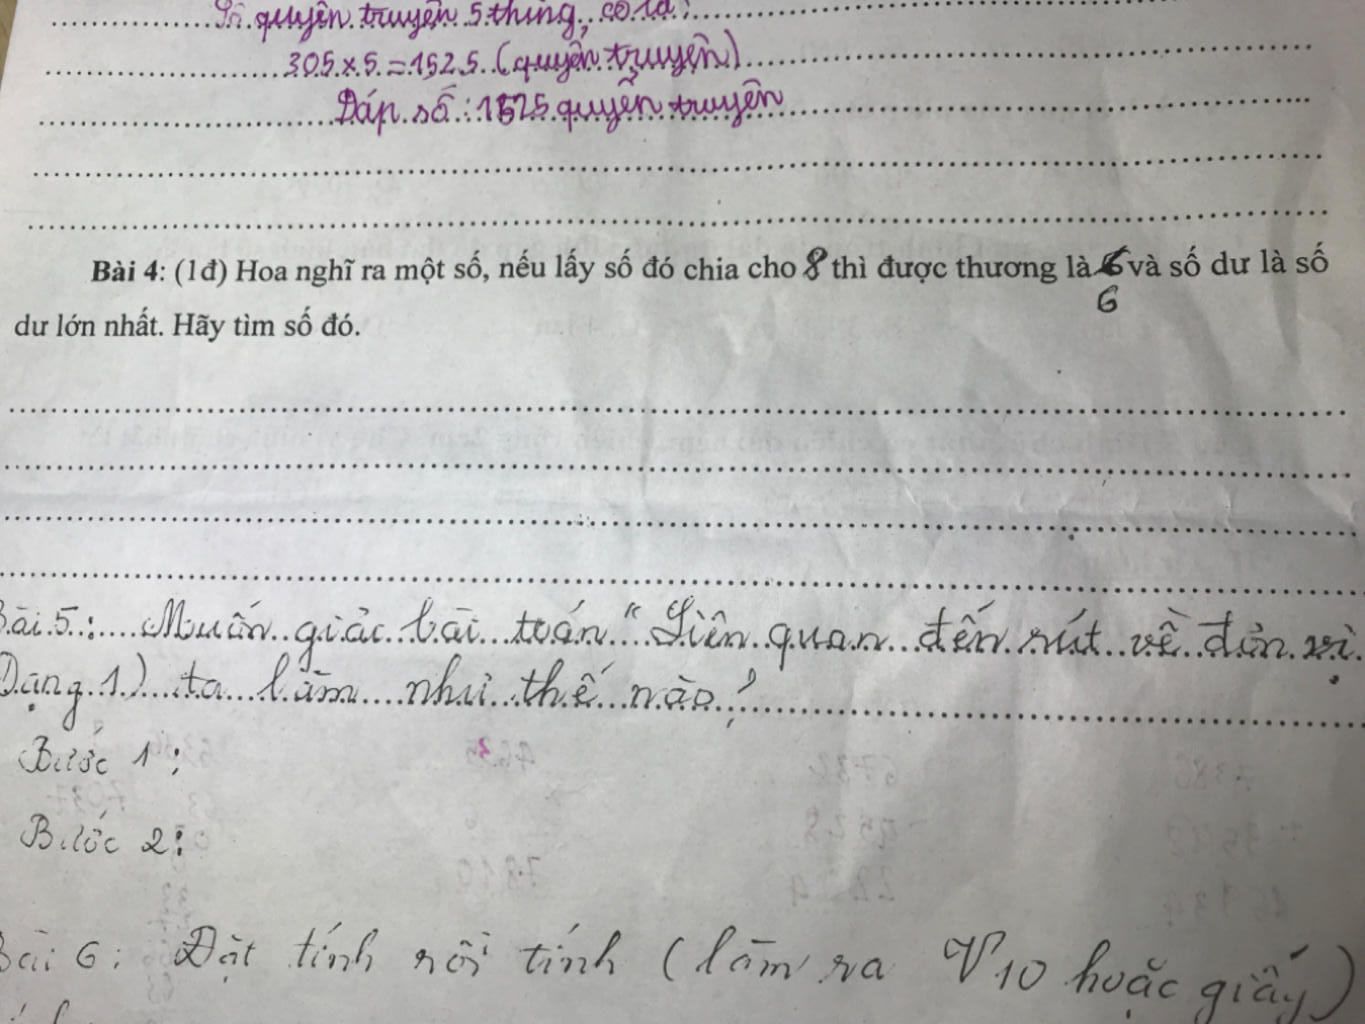 Số quyển truyện 5 thùng, có là:
305 x 5 = 1525 (quyển truyện)
Đáp số: 1525 quyển truyện
Bài 4: (1đ) Hoa nghĩ ra một số, nếu lấy số đó chia cho 8 thì được thương là 6 và số dư là số
6
dư lớn nhất. Hãy tìm số đó.
Bài 5: Muốn giải bài toán "Liên quan đến rút về đơn vị
Dạng 1) ta làm như thế nào?
Bước 1:
Bước 2:
Bài 6: Đặt tính rồi tính (làm ra V10 hoặc giấy)